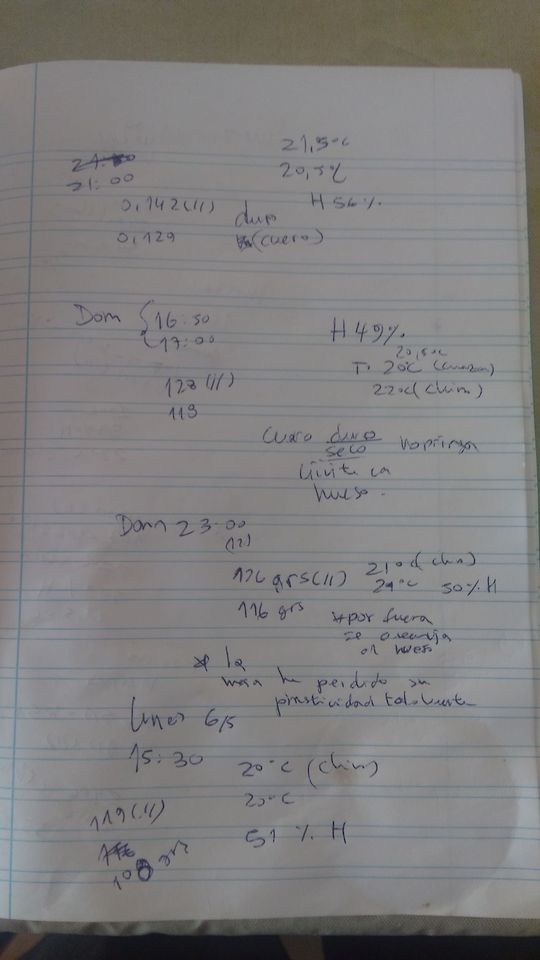 21:00
21,5°C
20,5°C
0,142(11) H 56%
0,129 duro
(cuero)
Dom 16:50
17:00
H 49%
20,5°C
T: 20°C
128(11) 22°C (chim)
119
Cuero duro
seco
límite ca
hueso.
Dom 23:00
(12)
126 grs(11) 21°C (chim)
21°C 50% H
116 grs *por fuera
se
al hueso
* la
masa ha perdido su
plasticidad totalmente
Lunes 6/5
15:30 20°C (chim)
119(11) 20°C
108 grs 51 % H